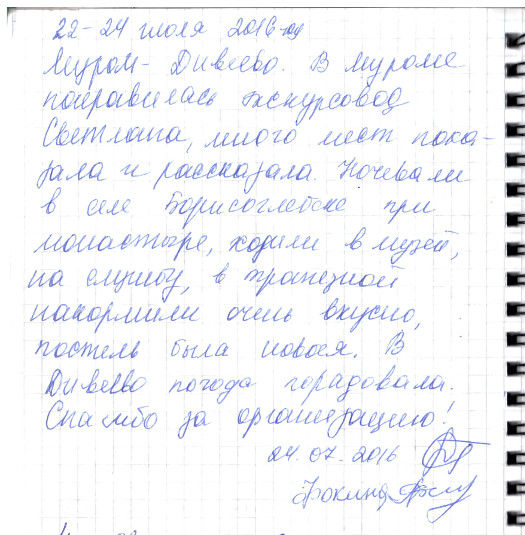 22-24 июля 2016 год
Муром - Дивеево. В Муроме
понравилась экскурсовод
Светлана, много мест пока-
зала и рассказала. Ночевали
в селе Борисоглебске при
монастыре, ходили в музей,
на службу, в трапезной
накормили очень вкусно,
постель была новая. В
Дивеево погода порадовала.
Спасибо за организацию!
24.07.2016
Фокина